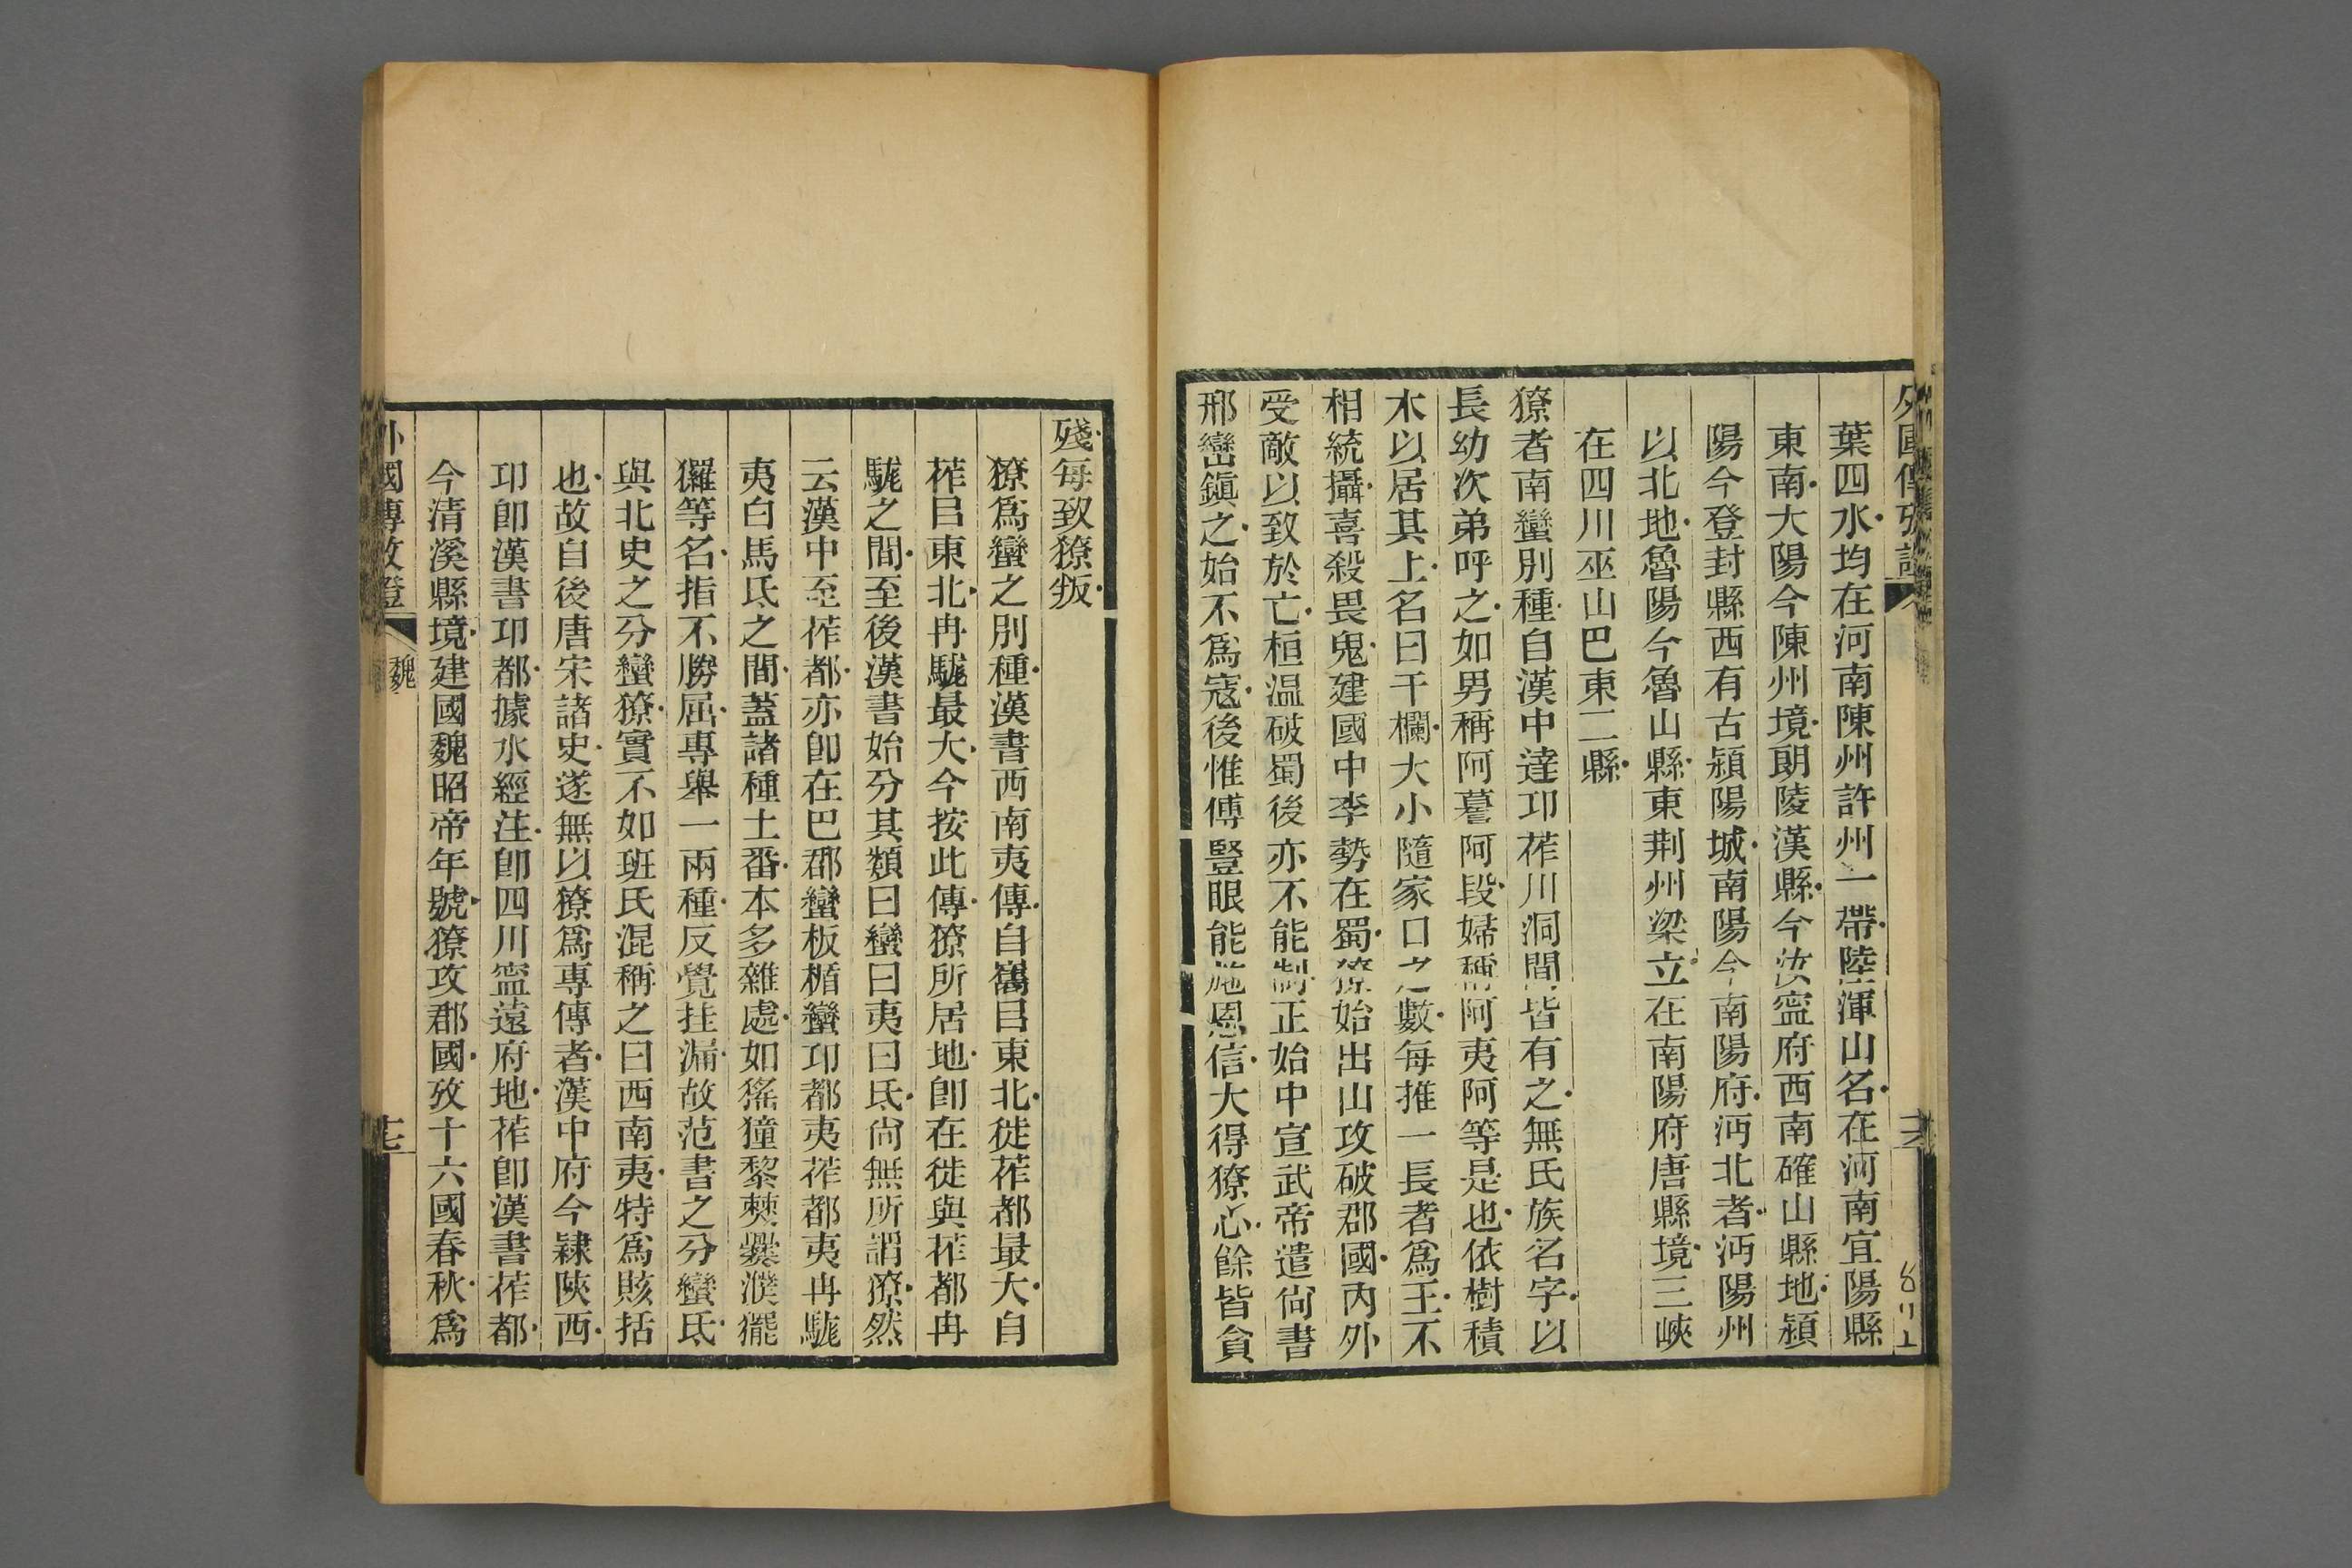 葉四水均在河南陳州許州一帶陸渾山名在河南宜陽縣
東南大陽今陳州境朗陵漢縣今汝寧府西南確山縣地潁
陽今登封縣西有古潁陽城南陽今南陽府沔北者沔陽州
以北地魯陽今魯山縣東荆州梁立在南陽府唐縣境三峽
在四川巫山巴東二縣
獠者南蠻別種自漢中達邛莋川洞間皆有之無氏族名字以
長幼次弟呼之如男稱阿謩阿段婦稱阿夷阿等是也依樹積
木以居其上名曰干欄大小隨家口之數每推一長者爲王不
相統攝喜殺畏鬼建國中李勢在蜀獠始出山攻破郡國丙外
受敵以致於亡桓温破蜀後亦不能制正始中宣武帝遣尙書
邢巒鎭之始不爲寇後惟傅豎眼能施恩信大得獠心餘皆貪
殘每致獠叛
獠爲蠻之別種漢書西南夷傳自巂㠯東北徙莋都最大自
莋㠯東北冉駹最大今按此傳獠所居地卽在徙與莋都冉
駹之間至後漢書始分其類曰蠻曰夷曰氐尙無所謂獠然
云漢中至莋都亦卽在巴郡蠻板楯蠻邛都夷莋都夷冉駹
夷白馬氐之間蓋諸種土番本多雜處如猺獞黎僰爨濮㺍
玀等名指不勝屈專舉一兩種反覺挂漏故范書之分蠻氐
與北史之分蠻獠實不如班氏混稱之曰西南夷特爲賅括
也故自後唐宋諸史遂無以獠爲專傳者漢中府今隸陝西
邛卽漢書邛都據水經注卽四川寧遠府地莋卽漢書莋都
今清溪縣境建國魏昭帝年號獠攻郡國攷十六國春秋爲
外國傳攷證
魏